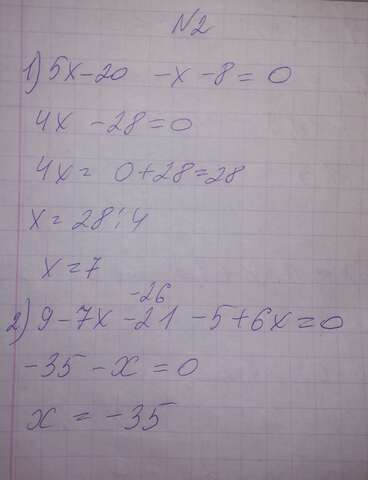 №2
1) 5x-20 -x-8=0
4x -28=0
4x= 0+28=28
x=28:4
x=7
-26
2) 9-7x-21 -5+6x=0
-35-x=0
x=-35